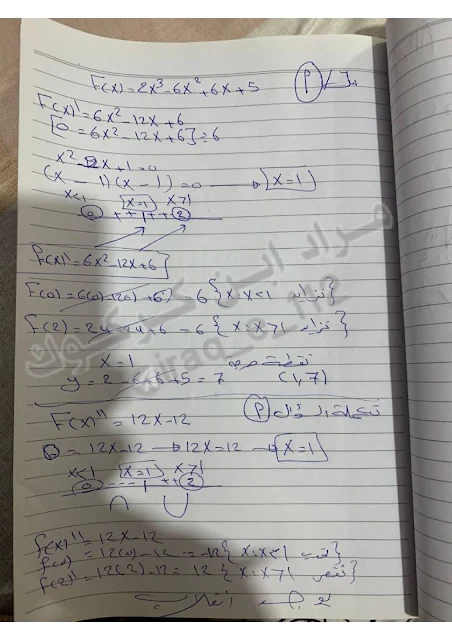 F(x) = 2x³ - 6x² + 6x + 5 (P)
F(x)' = 6x² - 12x + 6
[0 = 6x² - 12x + 6] ÷ 6
x² - 2x + 1 = 0
(x - 1)(x - 1) = 0 → x = 1
x<1 x=1 x>1
0 + + 1 + + 2
f(x)' = 6x² - 12x + 6
F(0) = 6(0) - 12(0) + 6 = 6 {x: x<1 تزايد}
f(2) = 24 - 24 + 6 = 6 {x: x>1 تزايد}
x = 1 نقطة حرجة
y = 2 - 6 + 6 + 5 = 7 (1, 7)
تكملة السؤال (P)
F(x)'' = 12x - 12
0 = 12x - 12 → 12x = 12 → x = 1
x<1 x=1 x>1
0 - - - 1 + + 2
∩ ∪
f(x)'' = 12x - 12
f(0)'' = 12(0) - 12 = -12 {x: x<1 تحدب}
f(2)'' = 12(2) - 12 = 12 {x: x>1 تقعر}
انقلاب
مراد ابن كركوك